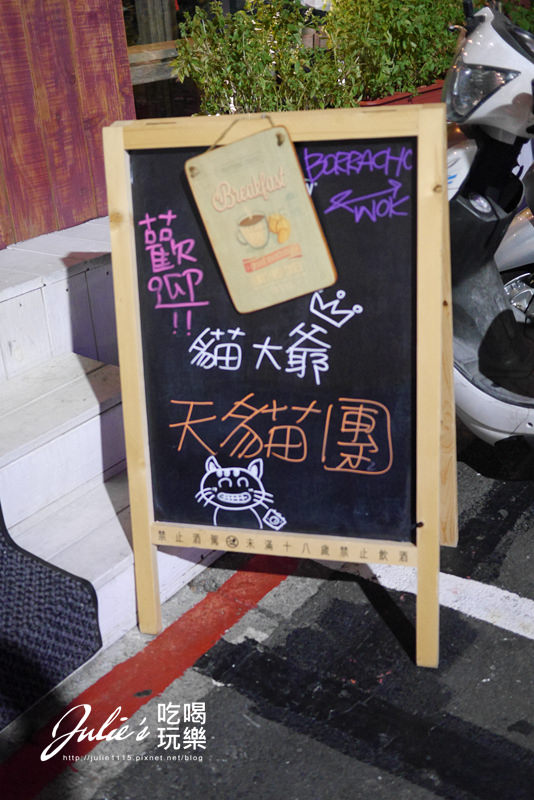 BORRACHO
WOK
Breakfast
歡迎!!
貓大爺
天貓團
禁止酒駕 未滿十八歲禁止飲酒
Julie's 吃喝玩樂
http://julie1115.pixnet.net/blog